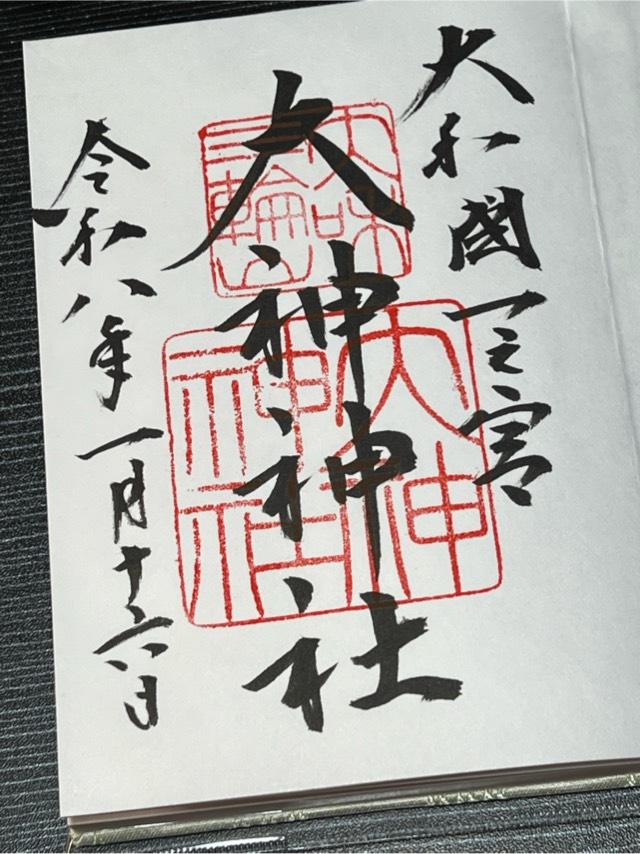 大和國一之宮
大神神社
令和八年一月十六日
大和
三輪山
大神
神社